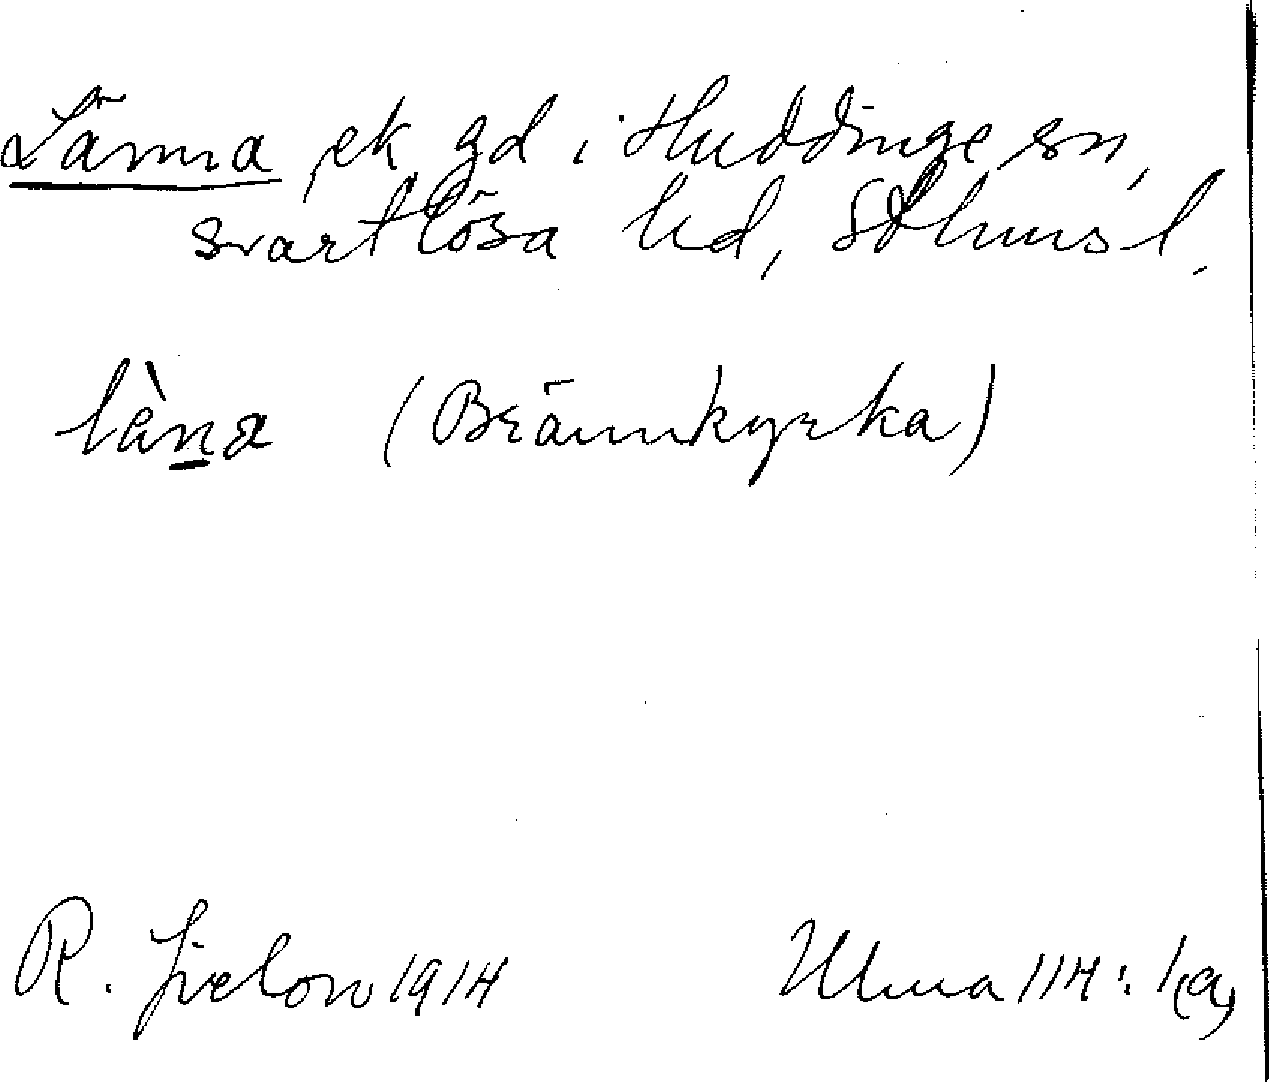 Länna, ek gd i Huddinge sn,
Svartlösa hd, Sthlms l.
làna (Brännkyrka)
R. Jirelow 1914 Ulma 114:1(a)